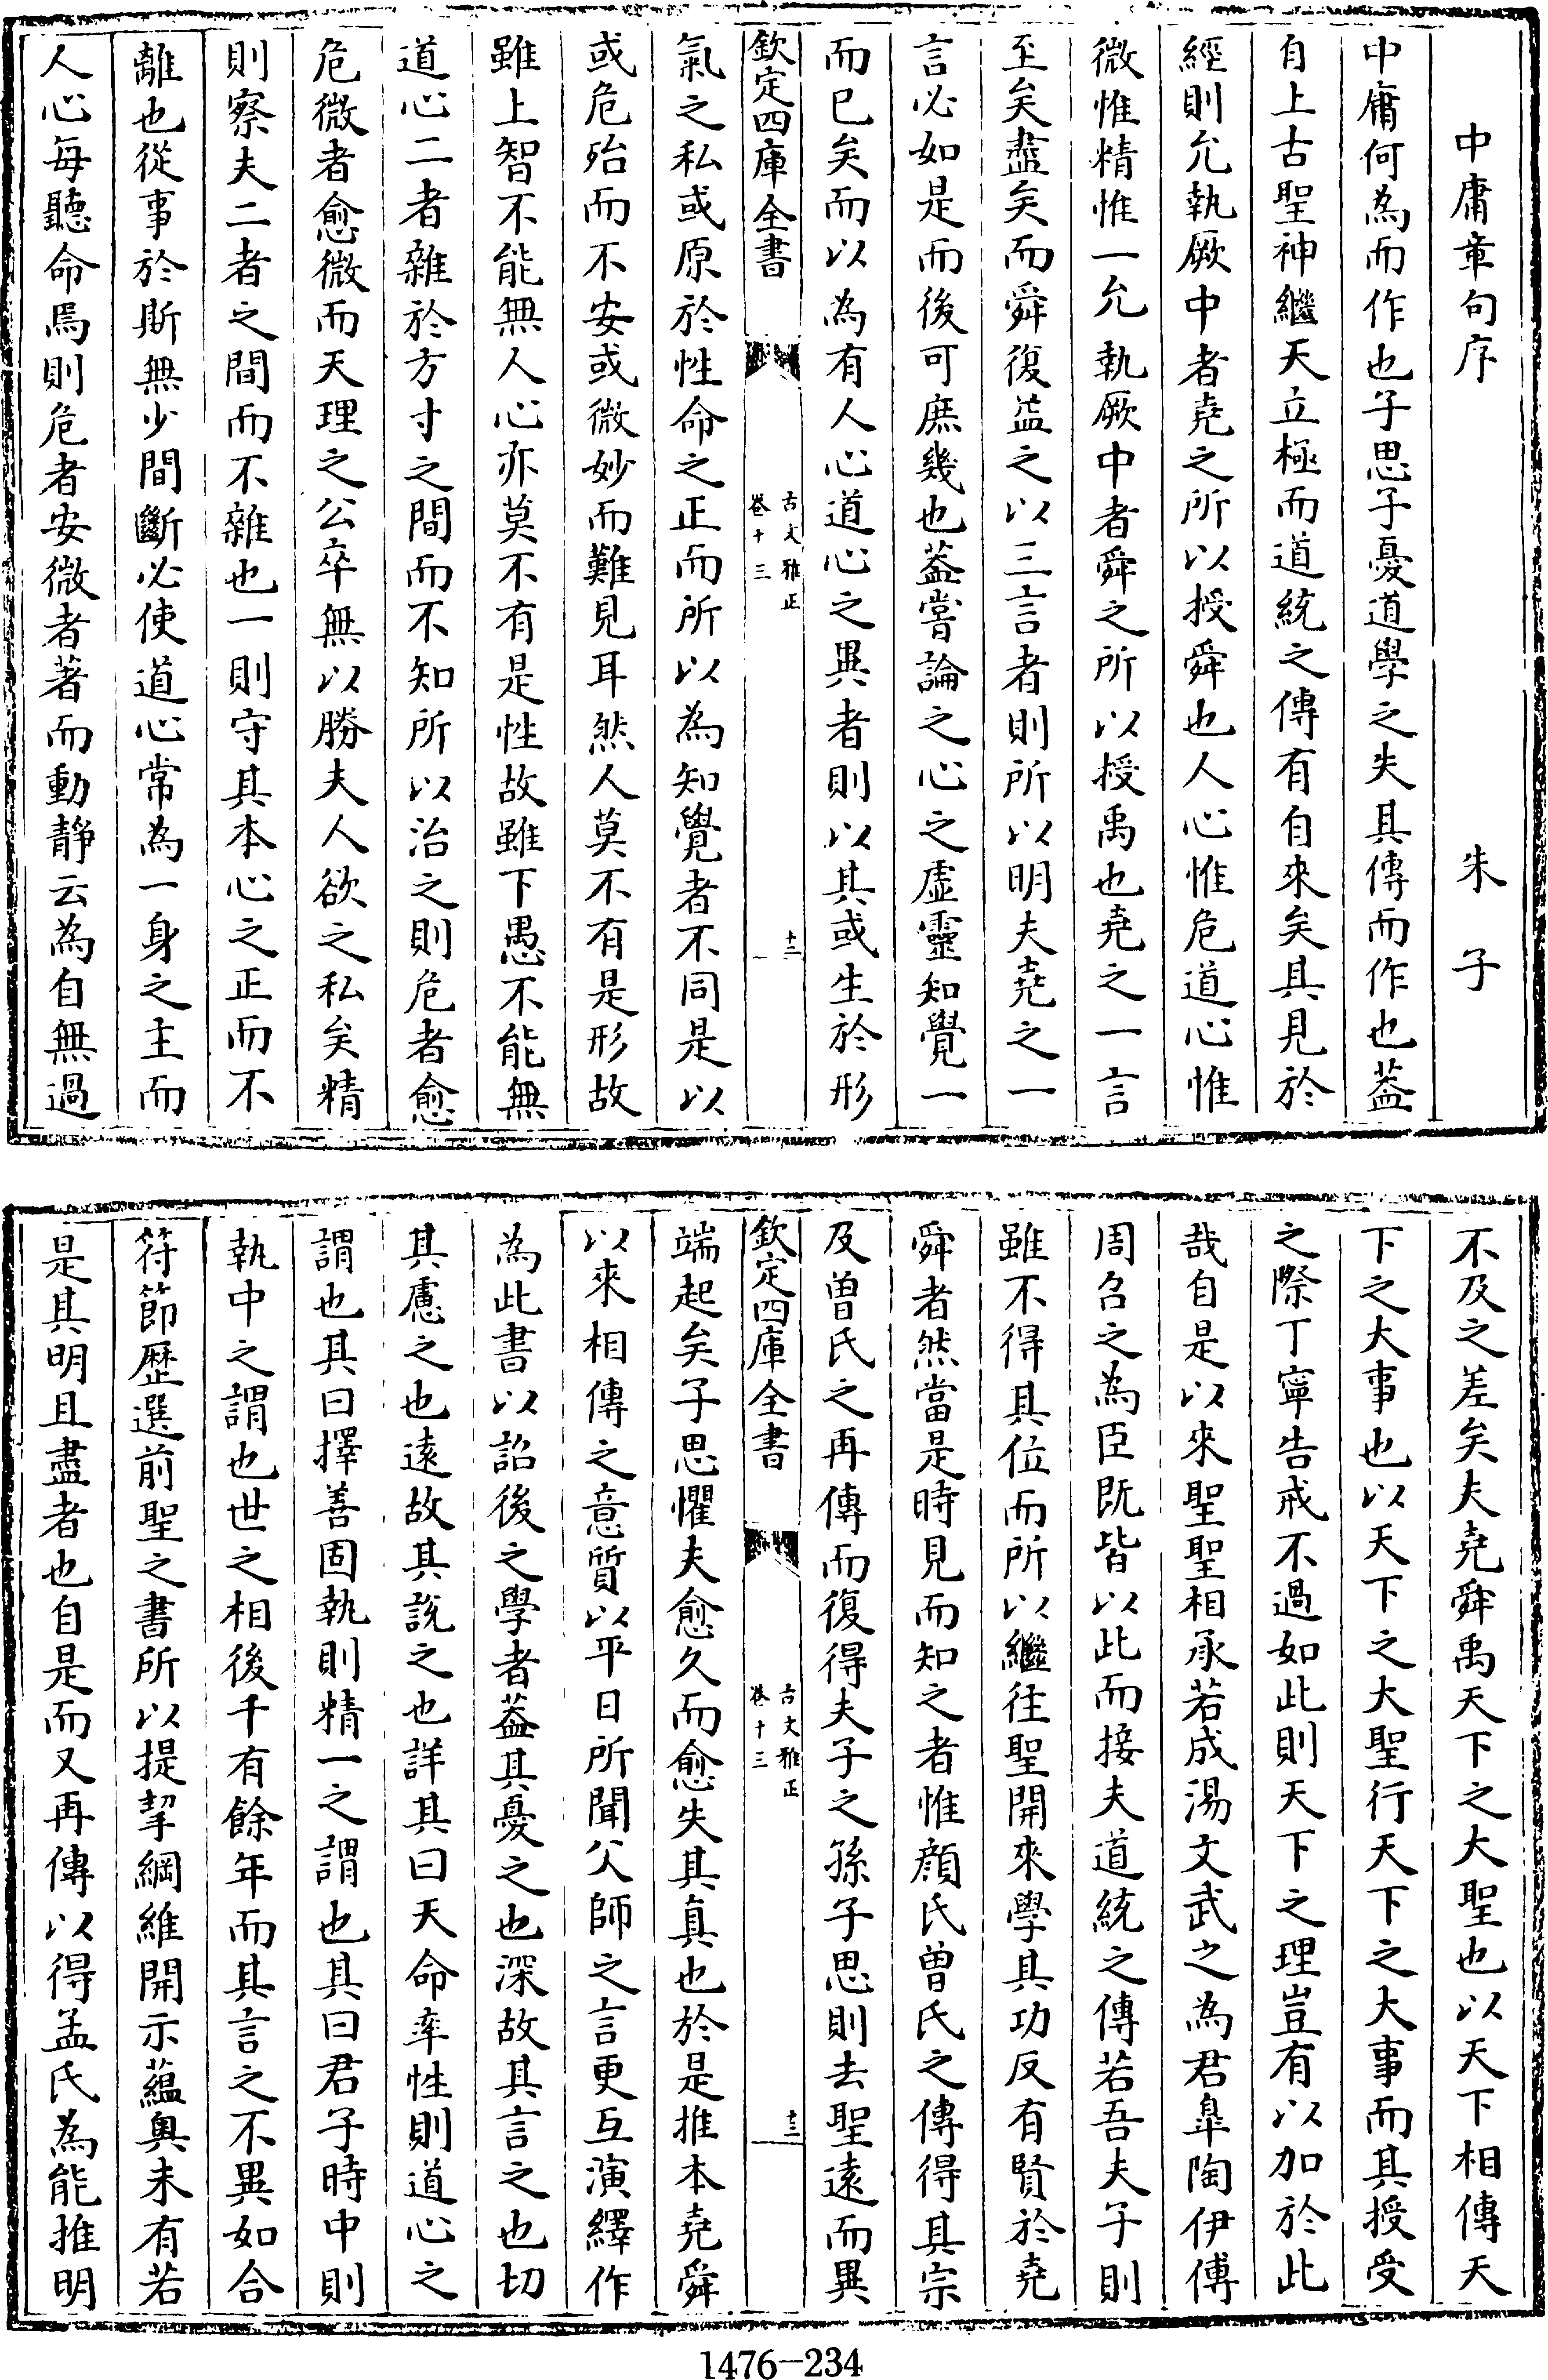 中庸章句序　朱子
中庸何為而作也子思子憂道學之失其傳而作也葢
自上古聖神繼天立極而道統之傳有自來矣其見於
經則允執厥中者堯之所以授舜也人心惟危道心惟
微惟精惟一允執厥中者舜之所以授禹也堯之一言
至矣盡矣而舜復益之以三言者則所以明夫堯之一
言必如是而後可庶幾也葢嘗論之心之虛靈知覺一
而已矣而以為有人心道心之異者則以其或生於形
欽定四庫全書　古文雅正　卷十三　十二
氣之私或原於性命之正而所以為知覺者不同是以
或危殆而不安或微妙而難見耳然人莫不有是形故
雖上智不能無人心亦莫不有是性故雖下愚不能無
道心二者雜於方寸之間而不知所以治之則危者愈
危微者愈微而天理之公卒無以勝夫人欲之私矣精
則察夫二者之間而不雜也一則守其本心之正而不
離也從事於斯無少間斷必使道心常為一身之主而
人心每聽命焉則危者安微者著而動靜云為自無過
不及之差矣夫堯舜禹天下之大聖也以天下相傳天
下之大事也以天下之大聖行天下之大事而其授受
之際丁寧告戒不過如此則天下之理豈有以加於此
哉自是以來聖聖相承若成湯文武之為君臯陶伊傅
周召之為臣既皆以此而接夫道統之傳若吾夫子則
雖不得其位而所以繼往聖開來學其功反有賢於堯
舜者然當是時見而知之者惟顔氏曾氏之傳得其宗
及曾氏之再傳而復得夫子之孫子思則去聖遠而異
欽定四庫全書　古文雅正　卷十三　十三
端起矣子思懼夫愈久而愈失其真也於是推本堯舜
以來相傳之意質以平日所聞父師之言更互演繹作
為此書以詔後之學者葢其憂之也深故其言之也切
其慮之也遠故其說之也詳其曰天命率性則道心之
謂也其曰擇善固執則精一之謂也其曰君子時中則
執中之謂也世之相後千有餘年而其言之不異如合
符節歴選前聖之書所以提挈綱維開示蘊奥未有若
是其明且盡者也自是而又再傳以得孟氏為能推明
1476-234